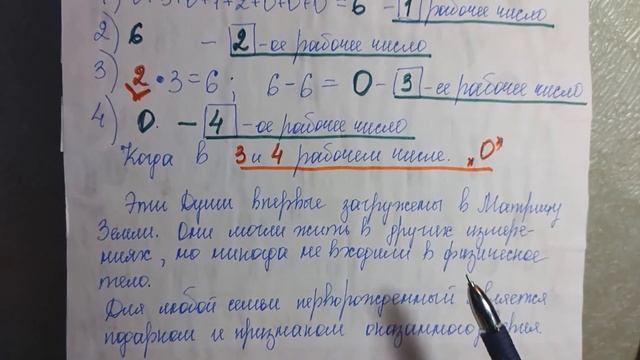 1) 0+3+0+1+2+0+0+0=6 - 1 рабочее число
2) 6 - 2 -ое рабочее число
3) 2 • 3 = 6; 6-6 = 0 - 3 -ее рабочее число
4) 0. - 4 -ое рабочее число
Когда в 3 и 4 рабочем числе. "0"
Эти Души впервые загружены в Матрицу
Земли. Они могли жить в других измере-
ниях, но никогда не входили в физическое
тело.
Для любой семьи перворожденный является
подарком и признаком оказанного